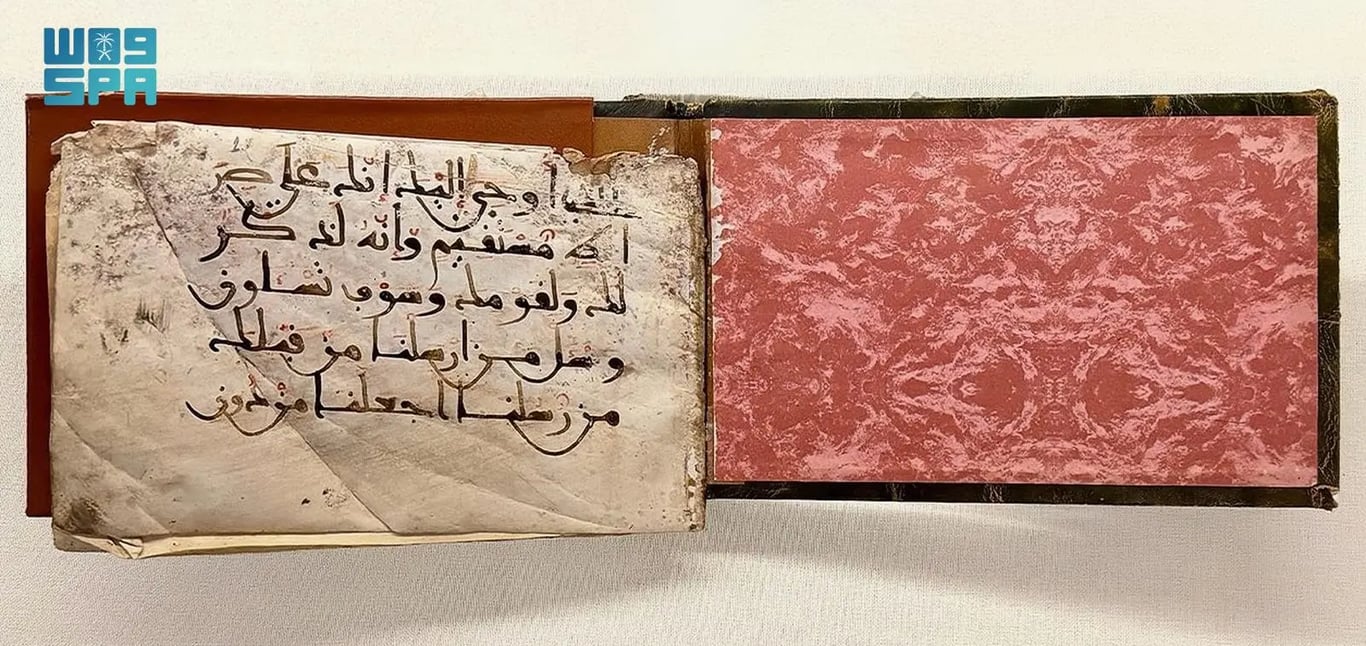 واس
SPA
بالذي أوحي إليك إنك على صر
اط مستقيم وإنه لذكر
لك ولقومك وسوف تسلون
وسل من ارسلنا من قبلك
من رسلنا اجعلنا من دون